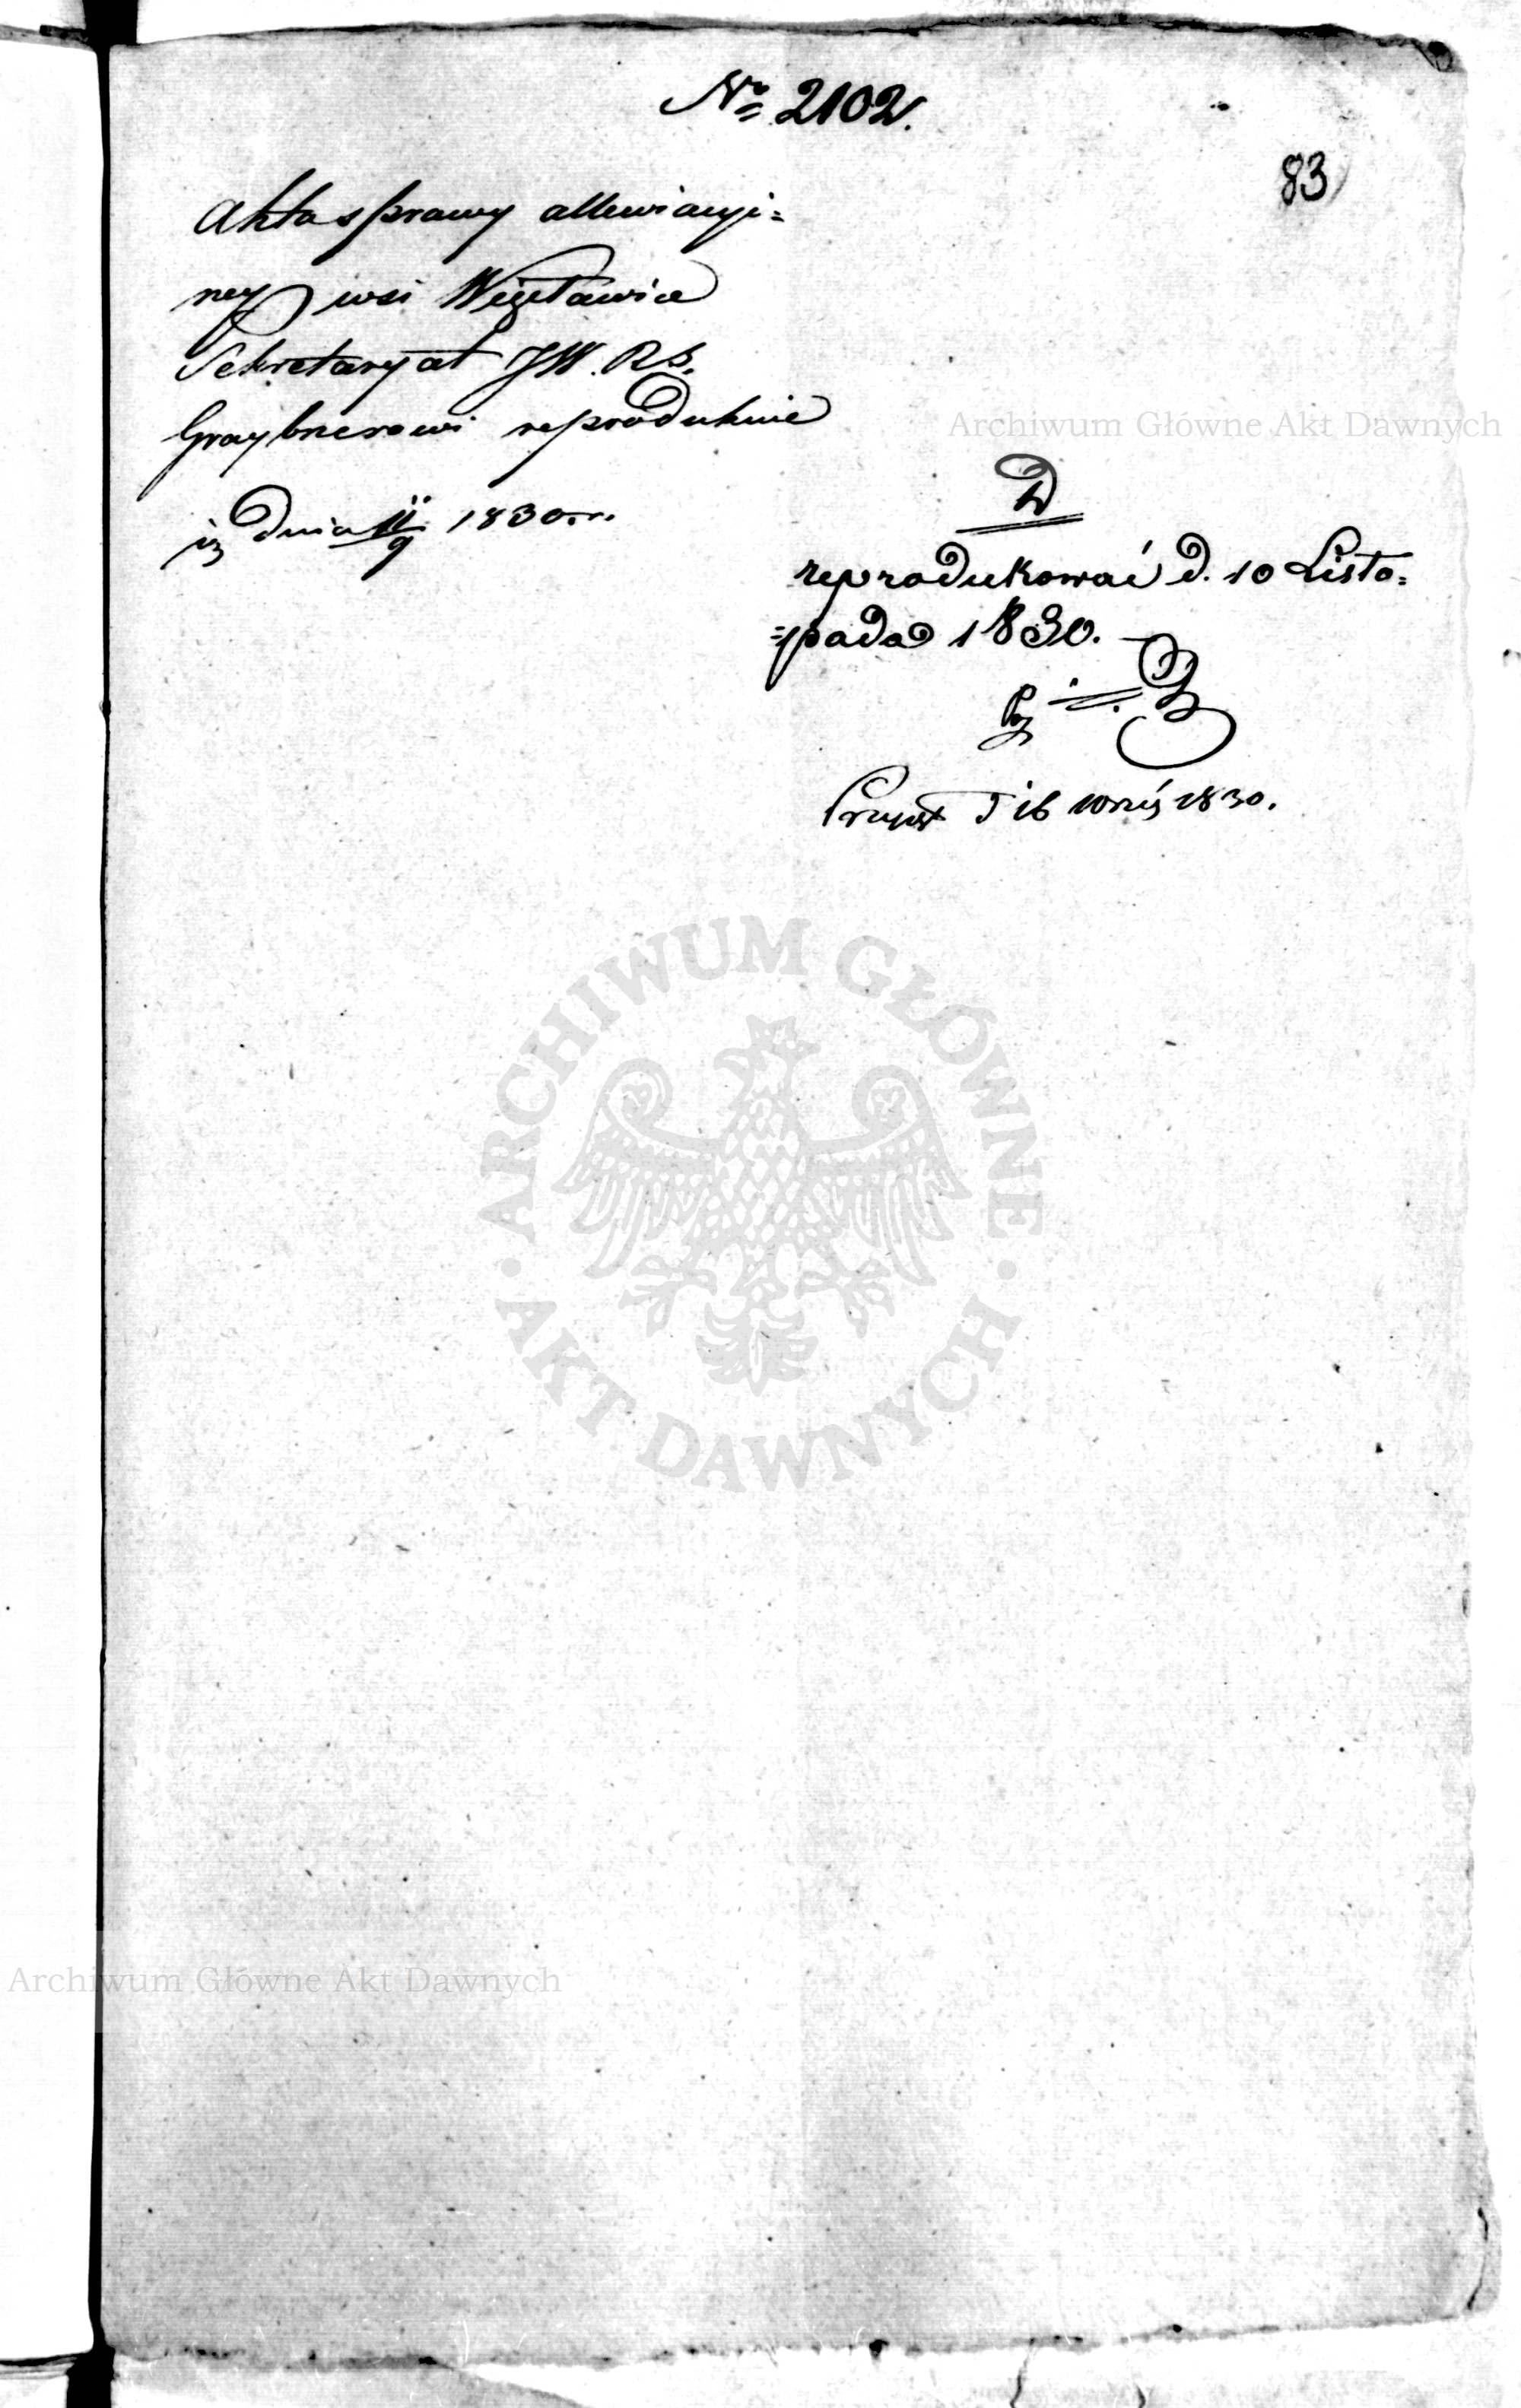 No 2102.
83
Akta sprawy allewiacyi=
ney wsi Więcławice
Sekretaryat JW. RS.
Graybnerowi reprodukuie
iż dnia 11/9 1830 r.
Archiwum Główne Akt Dawnych
D
reprodukować d. 10 Listo=
=pada 1830.
d 16 Wrześ 1830.
ARCHIWUM GŁÓWNE
AKT DAWNYCH
Archiwum Główne Akt Dawnych